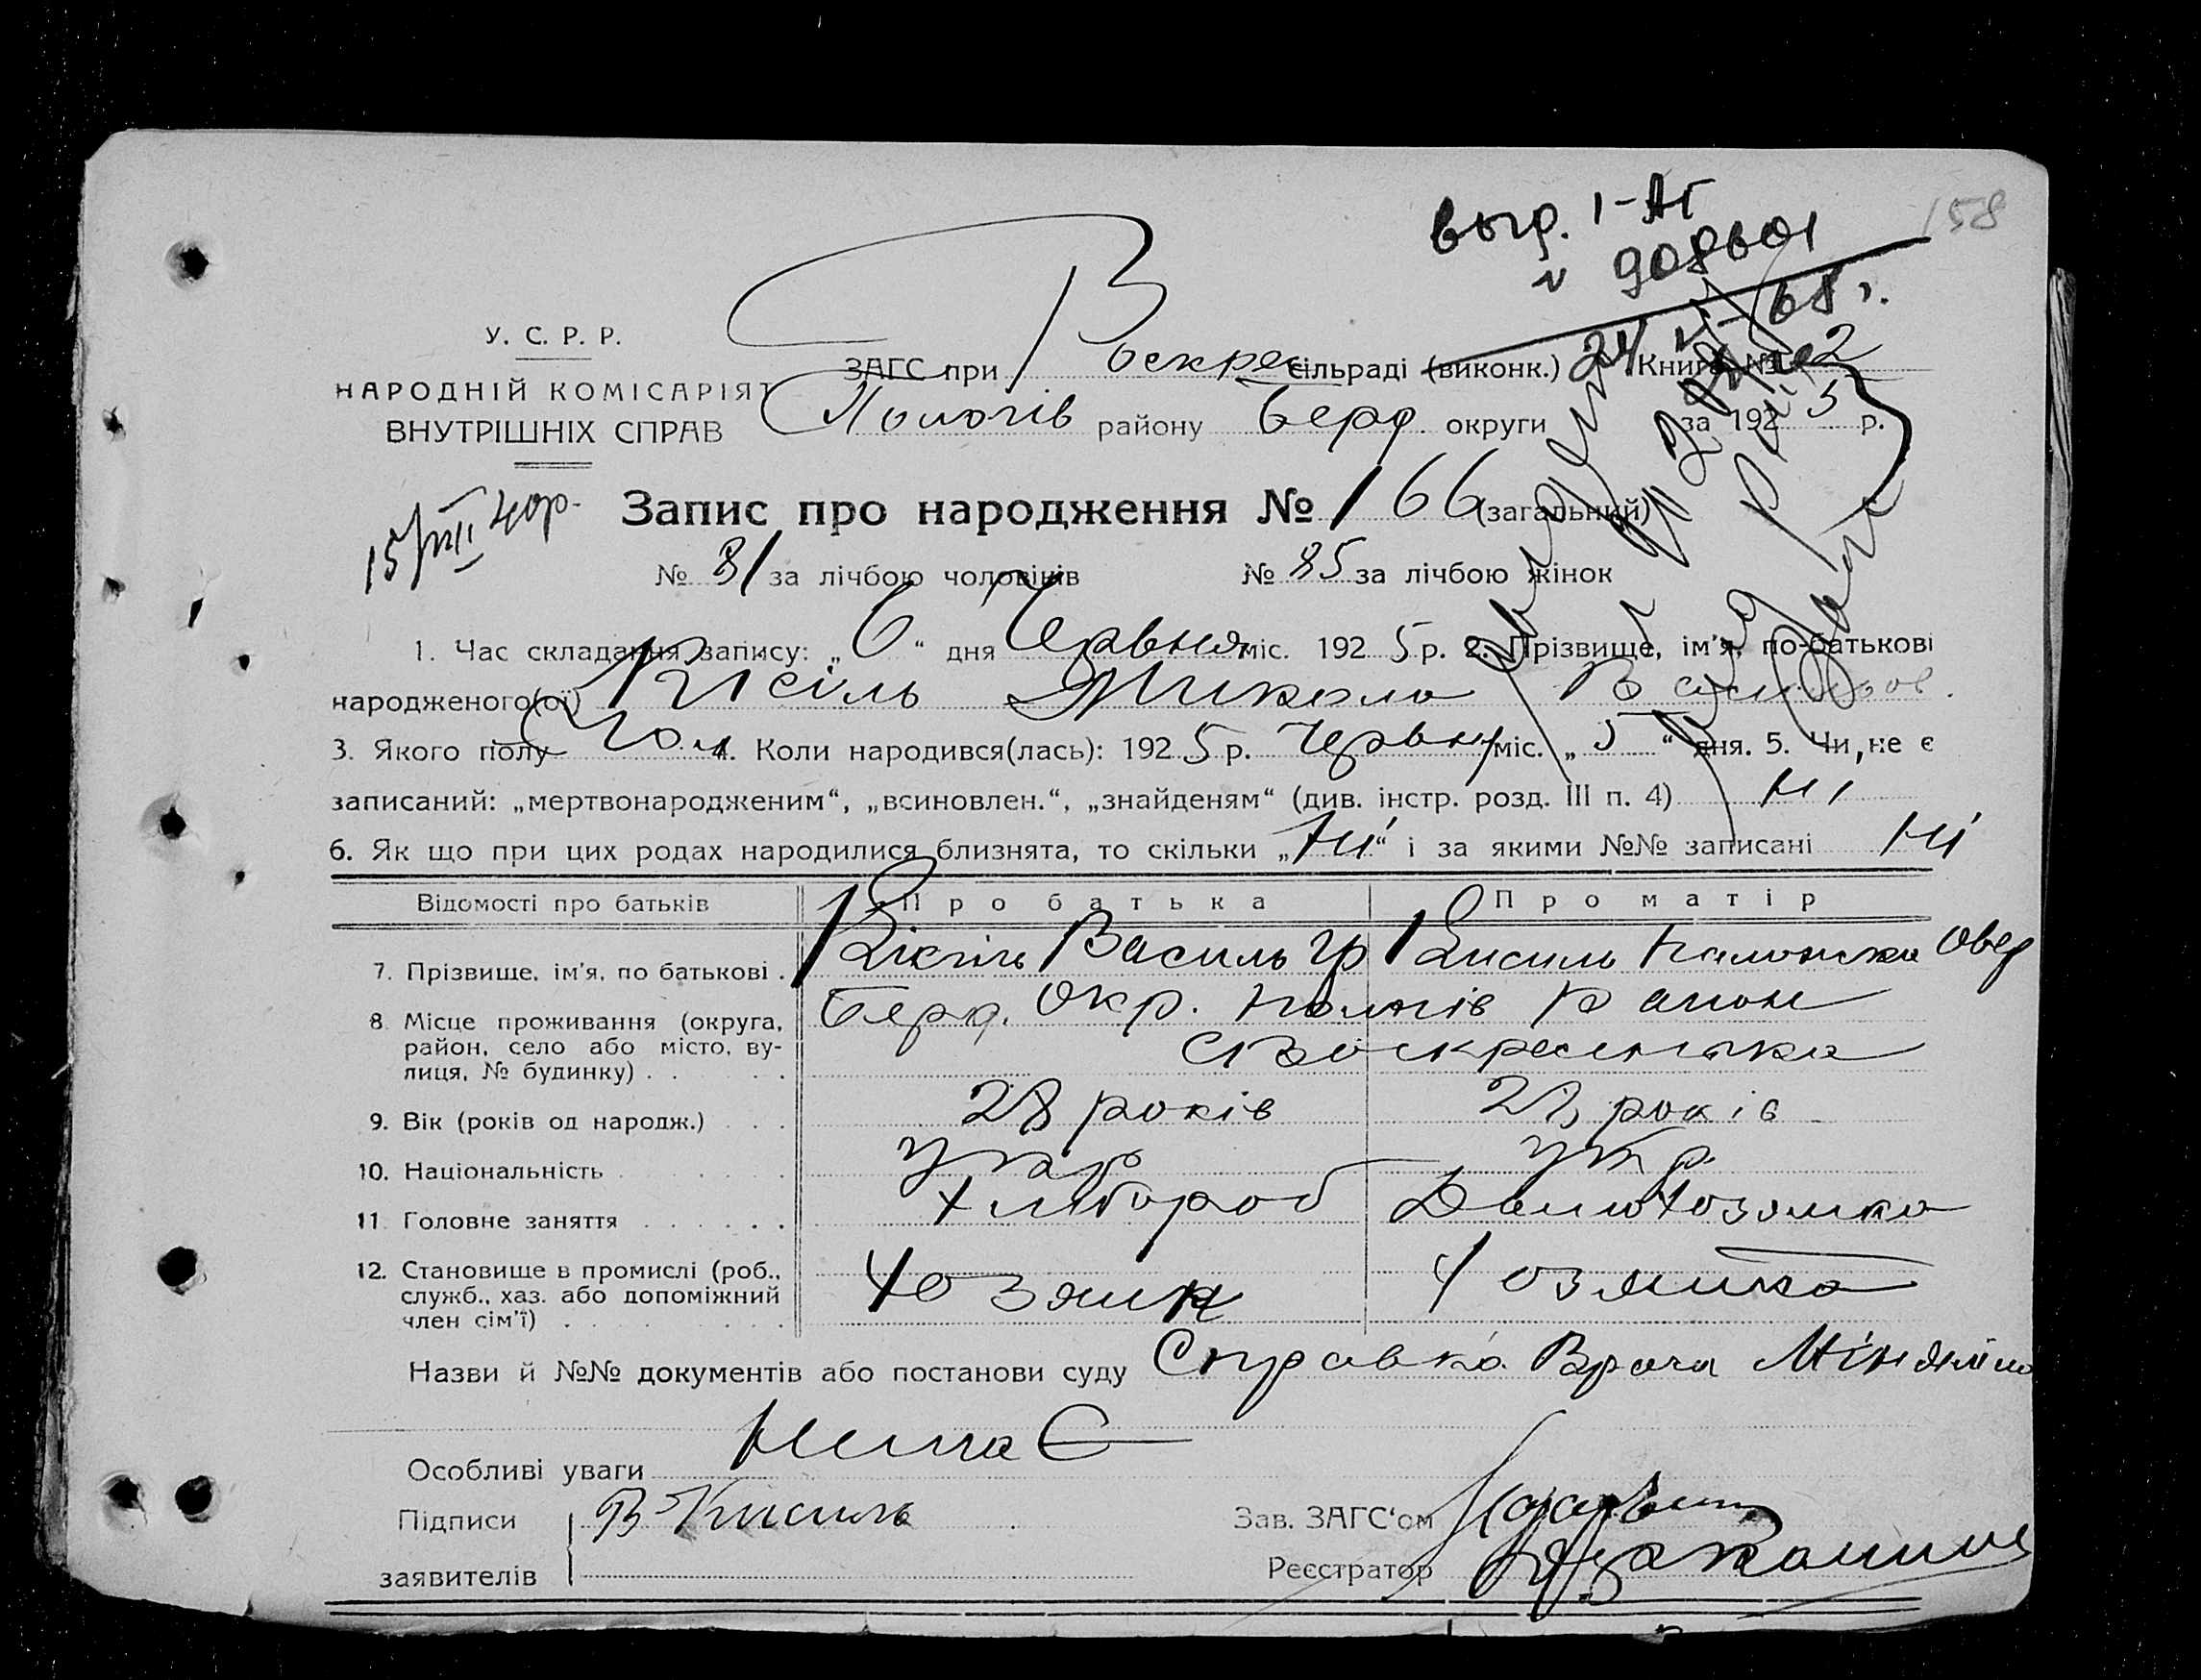 158
выд. 1-АГ
№ 908601
24 V-68 г.
У. С. Р. Р.
НАРОДНІЙ КОМІСАРІЯТ
ВНУТРІШНІХ СПРАВ
ЗАГС при Воскрес сільраді (виконк.) Книга № 2
Пологів району Берд. округи за 1925 р.
15/VIII 40р.
Запис про народження № 166 (загальний)
№ 81 за лічбою чоловіків № 85 за лічбою жінок
1. Час складання запису: „6“ дня Червня міс. 1925 р. 2. Прізвище, ім'я, по-батькові
народженого(ої) Кисіль Микола Васильов.
3. Якого полу Чол. 4. Коли народився(лась): 1925 р. Червня міс. „5“ дня. 5. Чи не є
записаний: „мертвонародженим“, „всиновлен.“, „знайденям“ (див. інстр. розд. III п. 4) Ні
6. Як що при цих родах народилися близнята, то скільки „Ні“ і за якими №№ записані Ні
Відомості про батьків Про батька Про матір
7. Прізвище, ім'я, по батькові . Кисіль Василь Гр Кисиль Овер
8. Місце проживання (округа, Берд. Окр. Пологів Район
район, село або місто, ву- с Воскресенка
лиця, № будинку) . . . .
9. Вік (років од народж.) . . . 28 років 28 років
10. Національність . . . . Укр Укр.
11. Головне заняття . . . . . . Хлібороб Домохозяйка
12. Становище в промислі (роб., Хозяин Хозяйка
служб., хаз. або допоміжний
член сім'ї) . . . .
Назви й №№ документів або постанови суду Справка Врача
Особливі уваги Немає
Підписи В Кисиль Зав. ЗАГС'ом
заявителів Реєстратор